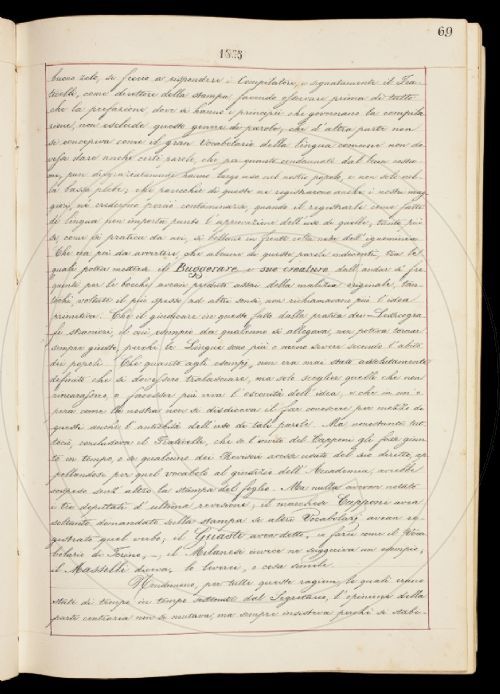 69
1883
buono zelo, si fecero a rispondere i Compilatori, e segnatamente il Fra-
ticelli, come direttore della stampa facendo osservare prima di tutto
che la prefazione, dove si hanno i principi che governano la compila
zione, non esclude questo genere di parole, che d'altra parte non
si concepiva come il gran Vocabolario della lingua comune non do-
vesse dare anche certe parole, che per quanto condannate dal buon costu-
me, pure disgraziatamente hanno largo uso nel nostro popolo, e non solo nel-
la bassa plebe; che parecchie di queste ne registrarono anche i nostri mag-
giori, nè credettero perciò contaminarsi, quando il registrarle come fatto
di lingua non importa punto l'approvazione dell'uso di quelle, tanto più
se, come si pratica da noi, si bollano in fronte colla nota dell'ignominia.
Che era poi da avvertire, che alcune di queste parole indecenti, tra le
quali poteva mettersi il Buggerare e sue creature dall'andar sì fre-
quenti per le bocche, avean perduto assai della malizia originale, tan-
tochè, voltate il più spesso ad altro senso, non richiamavano più l'idea
primitiva. Che il giudicare in questo fatto dalla pratica dei Lessicogra-
fi stranieri, il cui esempio da qualcuno si allegava, non poteva tornar
sempre giusto, perchè le Lingue sono più o meno severe secondo l'abito
dei popoli. Che quanto agli esempj, non era mai stato assolutamente
definito che si dovessero tralasciare, ma solo scegliere quelli che non
rincarassero, o facesser più viva l'oscenità dell'idea, e che in un'o-
pera come la nostra non si disdiceva il far conoscere per mezzo di
questi anche l'antichità dell'uso di tali parole. Ma nonostante tut-
tociò, concludeva il Fraticelli, che se l'invito del Capponi gli fosse giun-
to in tempo, o se qualcuno dei Revisori avesse usato del suo diritto, ap-
pellandosi per quel vocabolo al giudizio dell'Accademia, avrebbe
sospeso senz'altro la stampa del foglio. Ma nulla avevan notato
i tre deputati d'ultima revisione; il marchese Capponi avea
soltanto domandato sulla stampa se altri Vocabolari avean re-
gistrato quel verbo; il Giusti avea detto, io farei come il Voca-
bolario di Torino, —; il Milanesi invece ne suggeriva un esempio;
il Masselli diceva, lo leverei, o cosa simile.
Nondimeno, per tutte queste ragioni, le quali erano
state di tempo in tempo sottomesse dal Segretario, l'opinione della
parte contraria non si mutava, ma sempre insisteva perchè si stabi-